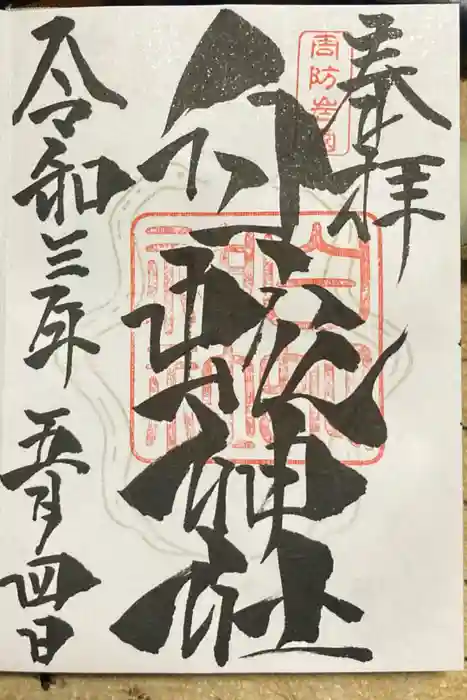 奉拝
周防岩國
白蛇神社
令和三年五月四日